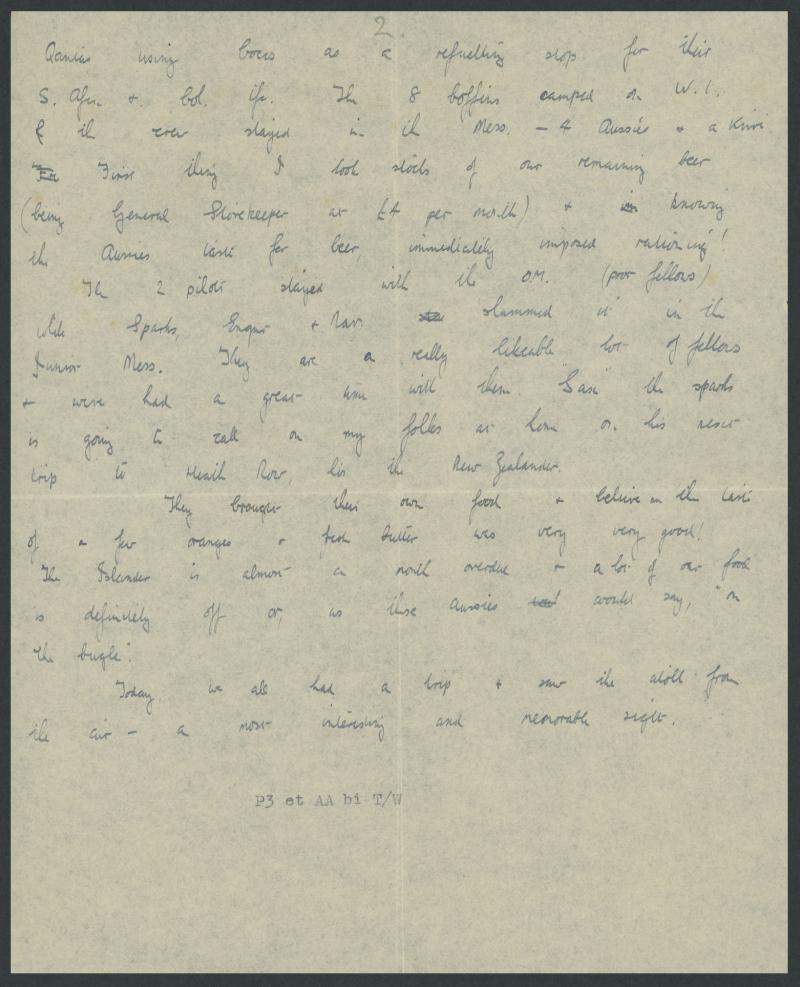 2.
Qantas using Cocos as a refuelling stop for their
S. Afn + Col. The 8 boffins camped on W.I.
& the crew stayed in the Mess. — 4 Aussies + a Kiwi.
First thing I took stock of our remaining beer
(being General Storekeeper at £4 per month) + knowing
the Aussies taste for beer, immediately imposed rationing!
The 2 pilots stayed with the O.M. (poor fellows)
while Sparks, Engnr + Nav. slummed it in the
Junior Mess. They are a really likeable lot of fellows
+ we've had a great time with them. the sparks
is going to call on my folks at home on his next
trip to Heath Row, his the New Zealander.
They brought their own food + believe me the taste
of a few oranges + fresh butter was very very good!
The Islander is almost a month overdue + a lot of our food
is definitely off or, as these Aussies would say, "on
the bugle".
Today we all had a trip + saw the atoll from
the air — a most interesting and memorable sight.
P3 et AA bi T/W